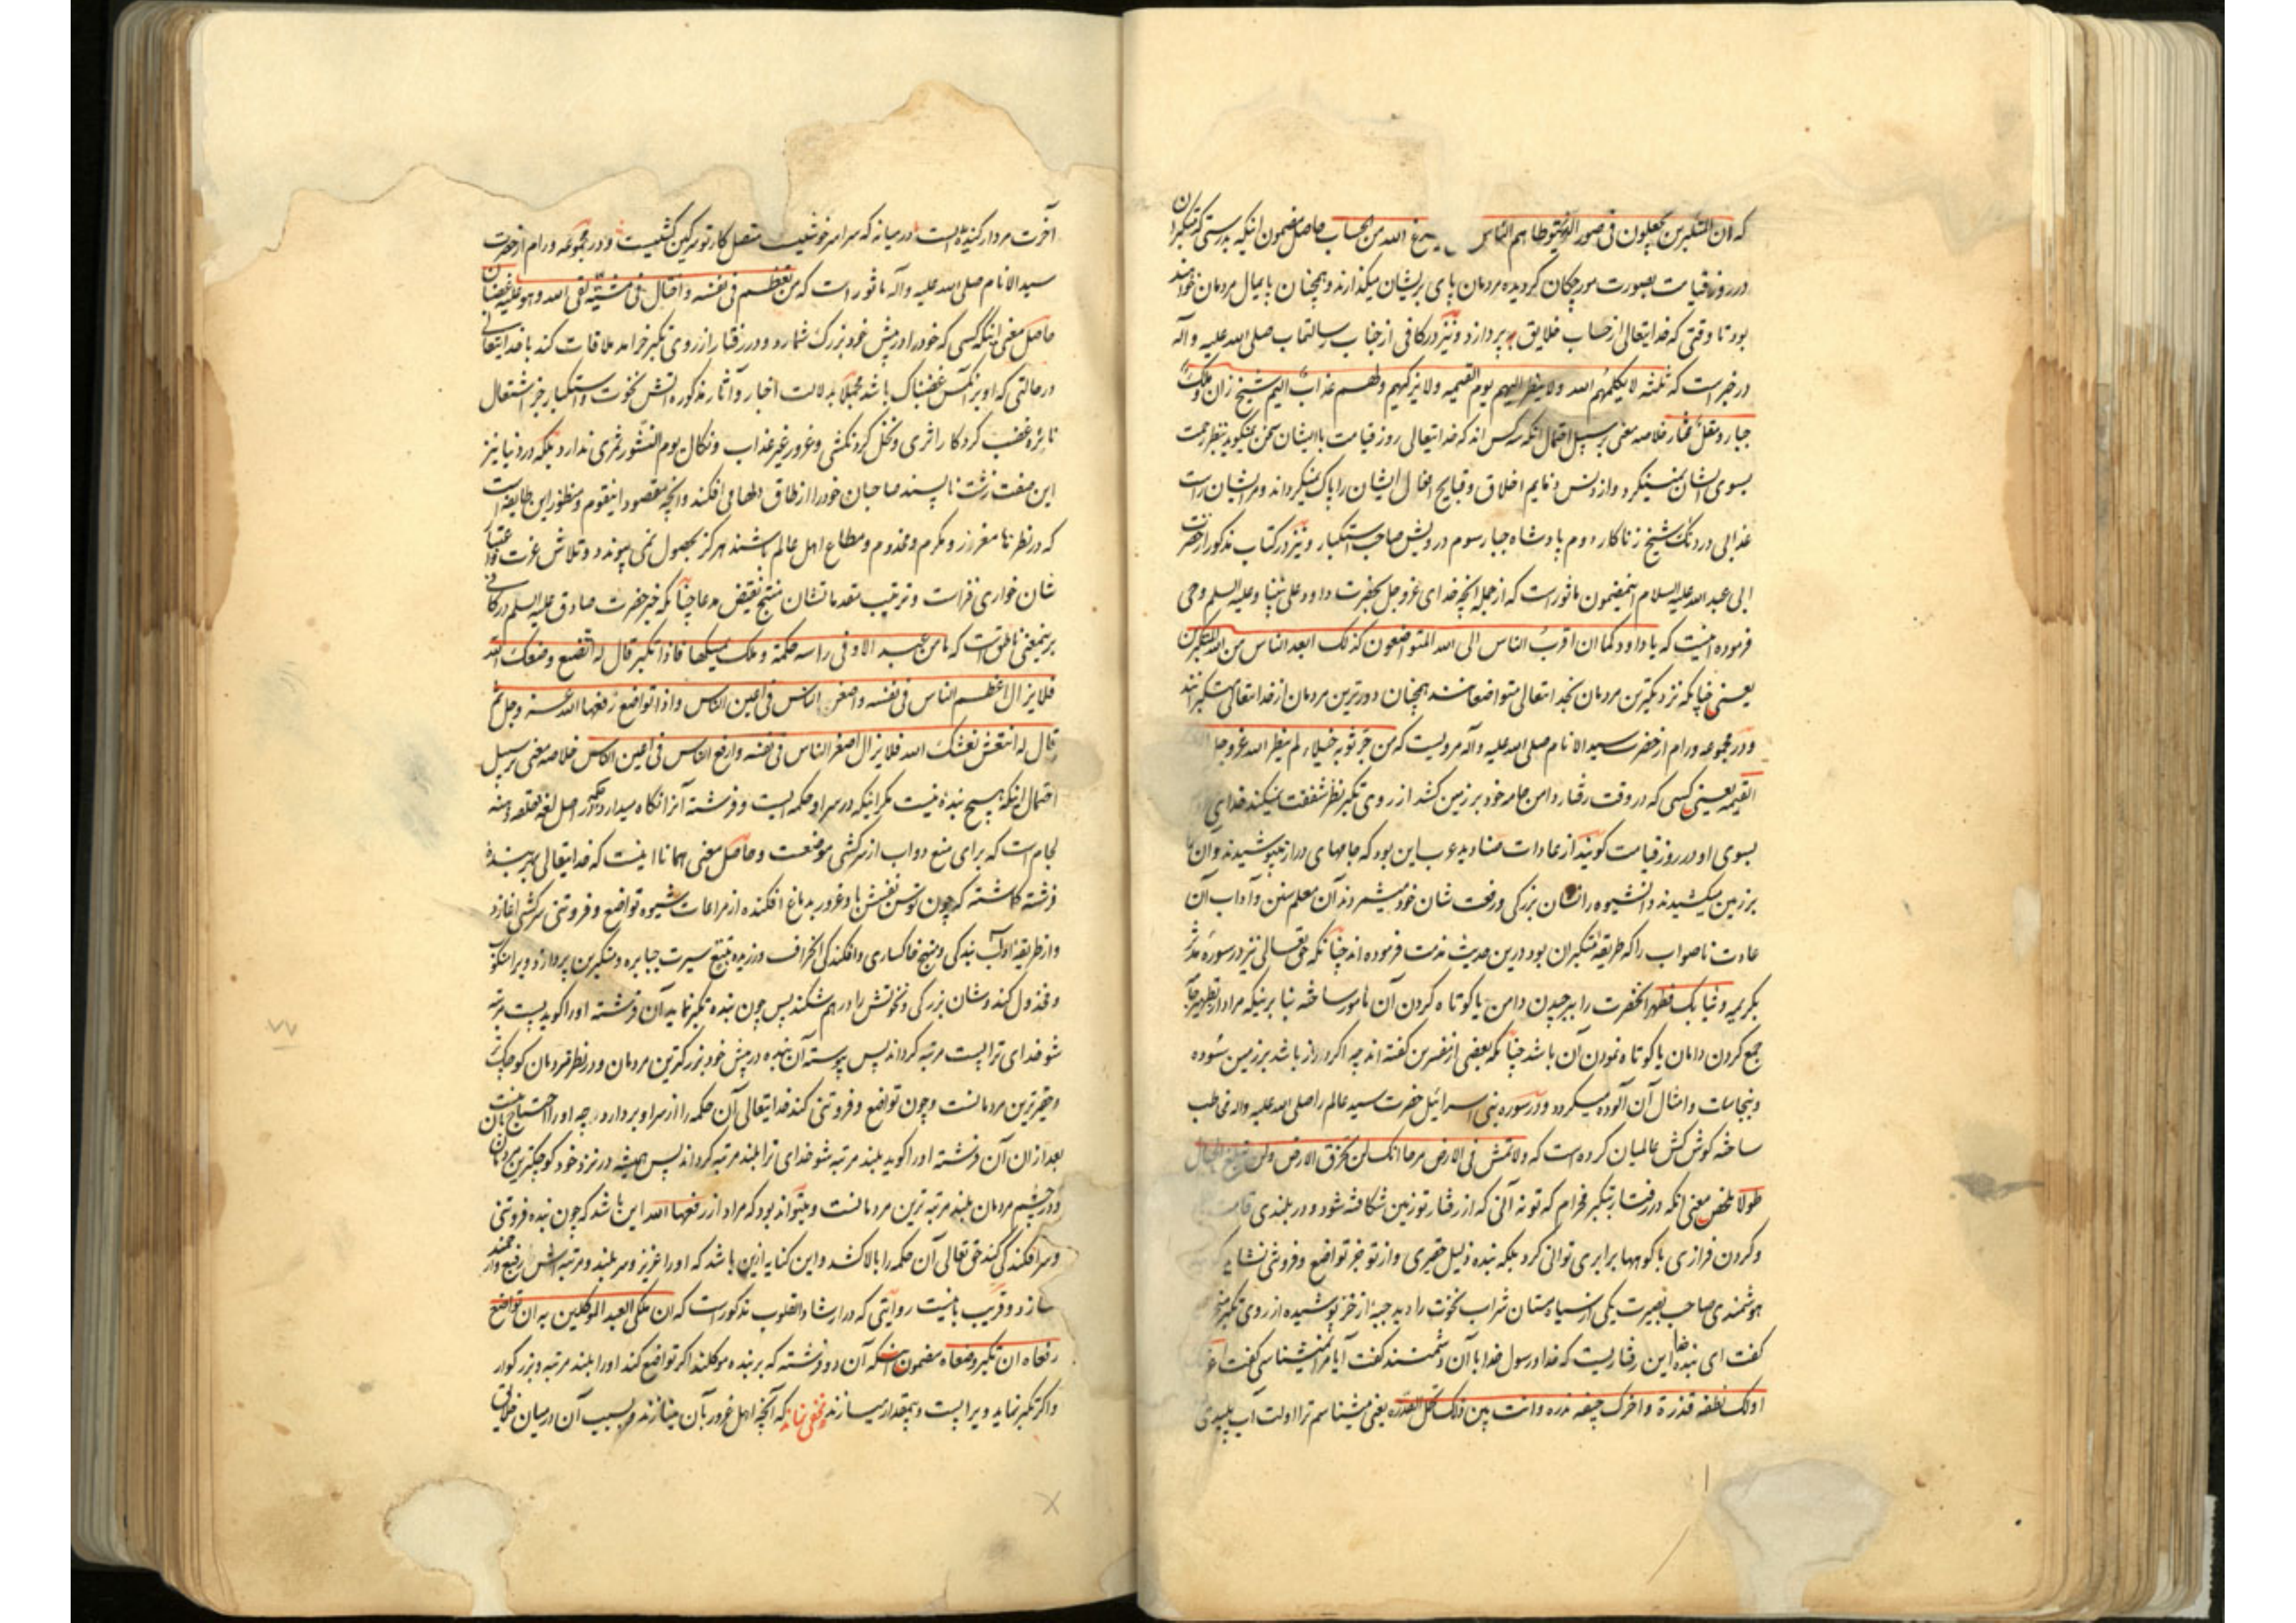 که ان المتکبرین یجعلون فی صور الذر یتوطاهم الناس یفرغ الله من الحساب حاصل مضمون انکه بدرستی که متکبران
در روز قیامت بصورت مورچکان کردیده مردمان پای بریشان میکذارند و همچنان پایمال مردمان خواهند
بود تا وقتی که خدایتعالی از حساب خلایق بپردازد و نیز در کافی از جناب رسالتماب صلی الله علیه و آله
در خبر است که ثلثه لا یکلمهم الله ولا ینظر الیهم یوم القیمه ولا یزکیهم ولهم عذاب الیم شیخ زان وملک
جبار ومقل مختار خلاصه معنی بر سبیل احتمال انکه سه کس اند که خدایتعالی روز قیامت با ایشان سخن نمیکوید بنظر رحمت
بسوی ایشان نمینکرد و از دنس ذمایم اخلاق و قبایح افعال ایشان را پاک نمیکرداند و مر ایشان راست
عذابی دردناک شیخ زناکار دوم پادشاه جبار سوم درویش صاحب استکبار و نیز در کتاب مذکور از حضرت
ابی عبد الله علیه السلام اینمضمون ماثور است که از جمله انچه خدای عزوجل بحضرت داود علی نبینا وعلیه السلم وحی
فرموده اینست که یا داود کما ان اقرب الناس الی الله المتواضعون کذلک ابعد الناس من الله المتکبرین
یعنی چنانکه نزدیکترین مردمان بخدایتعالی متواضعانند همچنان دورترین مردمان از خدایتعالی متکبرانند
و در مجموعه ورام از حضرت سید الانام صلی الله علیه وآله مرویست که من جر ثوبه خیلاء لم ینظر الله عزوجل
القیمه یعنی کسی که در وقت رفتار دامن جامه خود بر زمین کشد از روی تکبر نظر شفقت نمیکند خدای
بسوی او در روز قیامت کویند از عادات صنادید عرب این بود که جامهای دراز میپوشیدند و آن
بر زمین میکشیدند و اینشیوه را نشان بزرکی و رفعت شان خود میشمردند آن معلم سنن و آداب آن
عادت ناصواب را که طریقه متکبران بود درین حدیث مذمت فرموده اند چنانکه حق تعالی نیز در سوره مدثر
بکریمه وثیابک فطهر انحضرت را ببر چیدن دامن یا کوتاه کردن آن مامور ساخته بنا برینکه مراد از تطهیر جامه
جمع کردن دامان یا کوتاه نمودن آن باشد چنانکه بعضی از مفسرین کفته اند چه اکر دراز باشد بر زمین سوده
و بنجاسات و امثال آن آلوده میکردد و در سوره بنی اسرائیل حضرت سید عالم را صلی الله علیه واله مخاطب
ساخته کوش کش عالمیان کرده است که ولا تمش فی الارض مرحا انک لن تخرق الارض ولن تبلغ الجبال
طولا ملخص معنی انکه در رفتار بتکبر مخرام که تو نه آنی که از رفتار تو زمین شکافته شود و در بلندی قامت
و کردن فرازی با کوهها برابری توانی کرد بلکه بنده ذلیل حقیری و از تو جز تواضع و فروتنی نشاید
هوشمندی صاحب بصیرت یکی از سیاه مستان شراب نخوت را دید جبه از خز پوشیده از روی تکبر
کفت ای بنده خدا این رفتاریست که خدا و رسول خدا با آن دشمنند کفت آیا مرا نمیشناسی کفت
اولک نطفه قذرة واخرک جیفه مذره وانت بین ذلک تحمل العذره یعنی میشناسم ترا اولت آب پلیدی
آخرت مردار کندیده است در میانه که سرا سر خوشیست متصل کارتو سرکین کشیست و در مجموعه ورام از حضرت
سید الانام صلی الله علیه وآله ماثور است که من تعظم فی نفسه واختال فی مشیته لقی الله وهو علیه غضبان
حاصل معنی اینکه کسی که خود را در پیش خود بزرک شمارد و در رفتار از روی تکبر خرامد ملاقات کند با خدایتعالی
در حالتی که او بر آنکس غضبناک باشد مجملا بدلالت اخبار وآثار مذکوره آتش نخوت و استکبار جز اشتعال
نائره غضب کردکار اثری و نخل کردنکشی و غرور غیر عذاب و نکال یوم النشور ثمری ندارد بلکه در دنیا نیز
این صفت زشت ناپسند صاحبان خود را از طاق دلها می افکند و انچه مقصود اینقوم و منظور این طایفه است
که در نظرها معزز و مکرم و مخدوم و مطاع اهل عالم باشند هرکز بحصول نمی پیوندد و تلاش عزت و اعتبار
شان خواری فزاست و ترتیب مقدماتشان منتج نقیض مدعا چنانکه خبر حضرت صادق علیه السلم در کافی
برینمعنی ناطق است که ما من عبد الا وفی راسه حکمة وملک یمسکها فاذا تکبر قال له اتضع وضعک الله
فلا یزال اعظم الناس فی نفسه واصغر الناس فی اعین الناس واذا تواضع رفعها الله عز وجل ثم
قال له انتعش نعشک الله فلا یزال اصغر الناس فی نفسه وارفع الناس فی اعین الناس خلاصه معنی بر سبیل
احتمال انکه هیچ بنده نیست مکر اینکه در سر او حکمه ایست و فرشته آنرا نکاه میدارد و حکمه در اصل لغة بمعنی دهنه
لجام است که برای منع دواب از سرکشی موضعست و حاصل معنی همانا اینست که خدایتعالی بهر بنده
فرشته کماشته که چون توسن نفسش با وغرور بدماغ افکنده از مراعات شیوه تواضع و فروتنی سرکشی اغازد
و از طریقه آداب بندکی و منهج خاکساری و افکندکی انحراف ورزیده تتبع سیرت جبابره و متکبرین پردازد ویرا منکوب
و مخذول کند و شان بزرکی و نخوتش را درهم شکند پس چون بنده تکبر نماید آن فرشته او را کوید پست مرتبه
شو خدای ترا پست مرتبه کرداند پس پیوسته آن بنده در پیش خود بزرکترین مردمان و در نظر مردمان کوچکتر
و حقیرترین مردمانست و چون تواضع و فروتنی کند خدایتعالی آن حکمه را از سر او بردارد چه او را احتیاج بان نیست
بعد از ان آن فرشته او را کوید بلند مرتبه شو خدای ترا بلند مرتبه کرداند پس همیشه در نزد خود کوچکترین مردمان
و در چشم مردمان بلند مرتبه ترین مردمانست و میتواند بود که مراد از رفعها الله این باشد که چون بنده فروتنی
و سرافکندکی کند حق تعالی آن حکمه را بالا کشد و این کنایه ازین باشد که او را عزیز و سر بلند و مرتبه اش رفیع و ارجمند
سازد و قریب باینست روایتی که در ارشاد القلوب مذکور است که ان ملکی العبد الموکلین به ان تواضع
رفعاه ان تکبر وضعاه مضمون اینکه آن دو فرشته که بر بنده موکلند اکر تواضع کند او را بلند مرتبه و بزرکوار
و اکر تکبر نماید ویرا پست و بیمقدار میسازند مخفی نماند که آنچه اهل غرور بآن مینازند و بسبب آن در میان خلائق